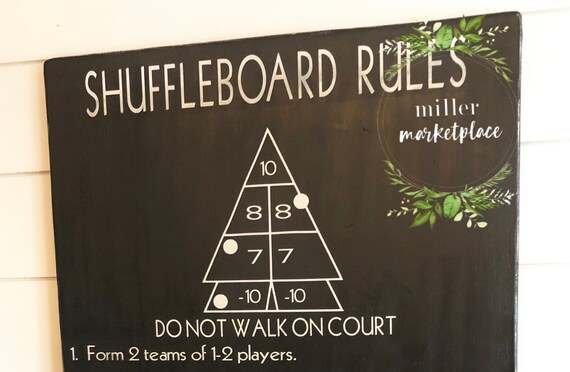 SHUFFLEBOARD RULES
miller
marketplace
10
8 8
7 7
-10 -10
DO NOT WALK ON COURT
1. Form 2 teams of 1-2 players.